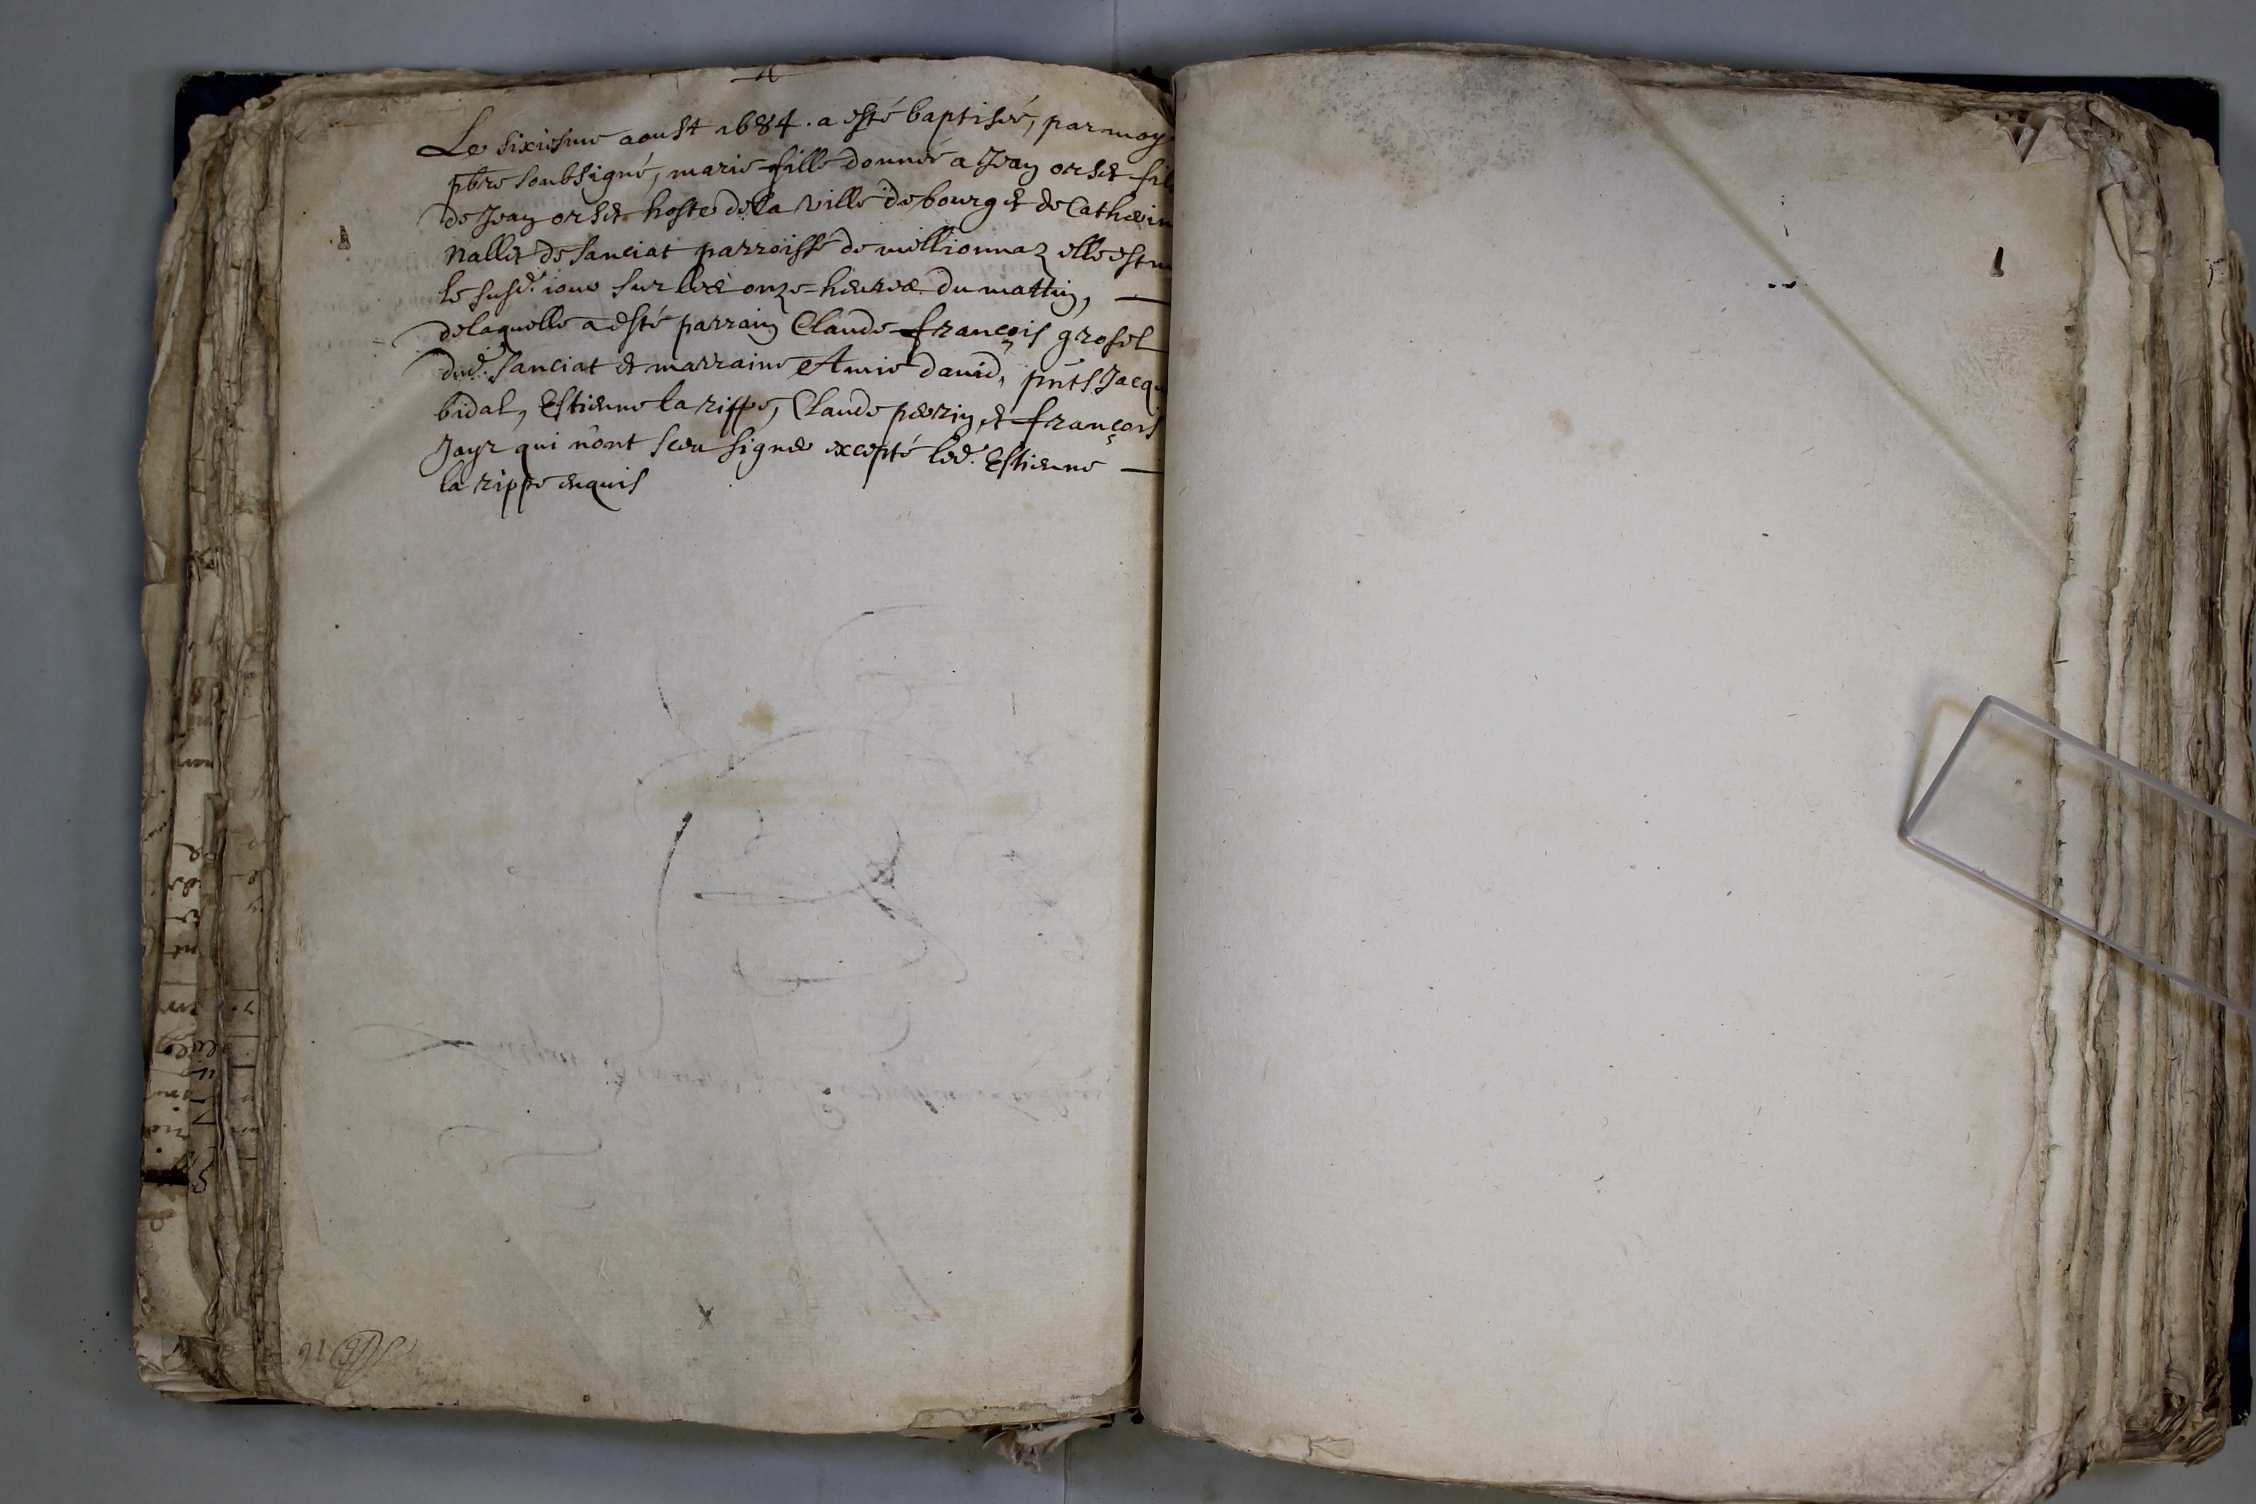 Le sixiesme aoust 1684. a esté baptisée, par moy
pbre soubsigné, marie fille donnée a Jean orset fils
de Jean orset hoste de la ville de bourg et de Catherin
Nallet de sanciat parroisse de millionnaz elle est n
le susd. jour sur les onze heures du mattin, —
de laquelle a esté parrain Claude françois grosel
dud. sanciat et marraine Amie david, pnts Jacq
bidal, Estienne la rippe, Claude perrin, et françois
Jayr qui n'ont sceu signer excepté led. Estienne —
la rippe enquis